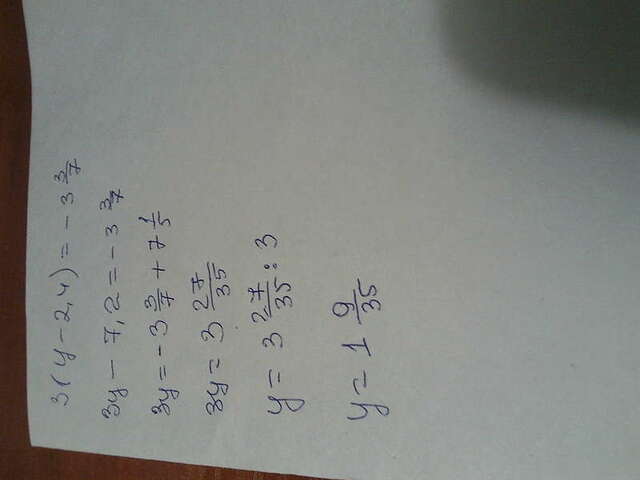 3(y-2,4)=-3 3/7
3y-7,2=-3 3/7
3y=-3 3/7+7 1/5
3y=3 27/35
y=3 27/35:3
y=1 9/35